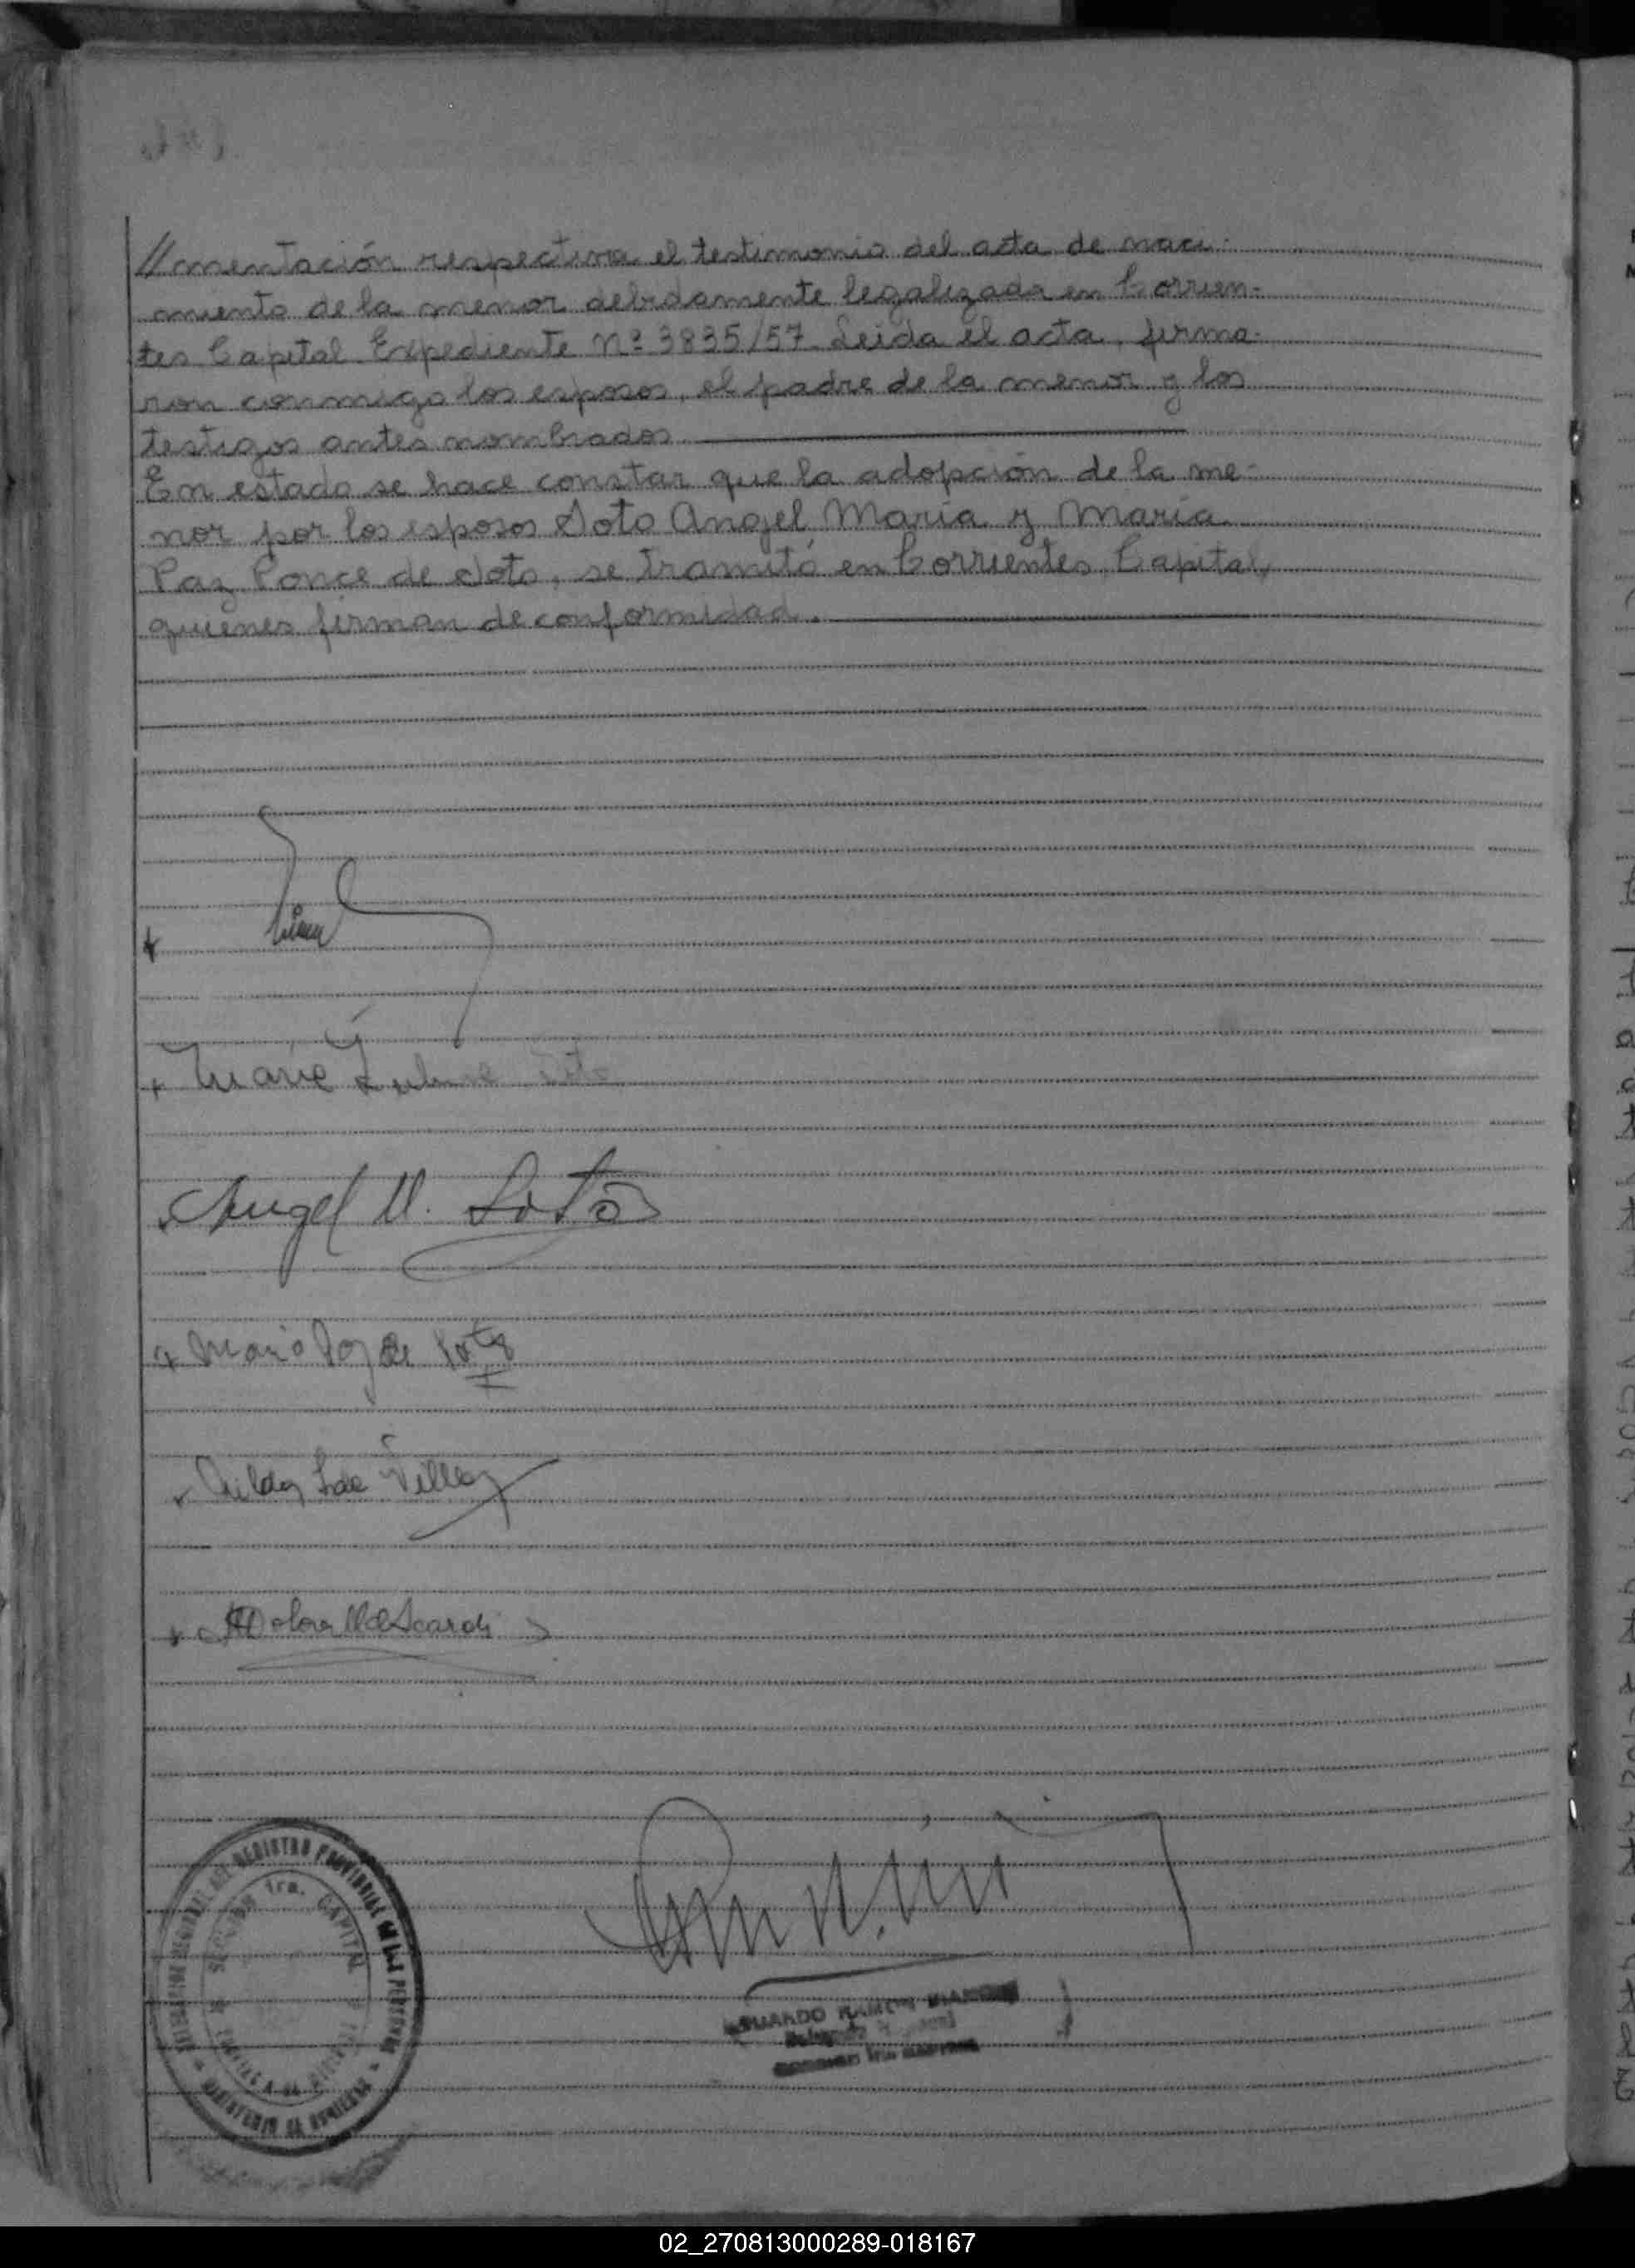 //mentación respectiva el testimonio del acta de naci-
miento de la menor debidamente legalizada en Corrien-
tes Capital Expediente Nº 3835/57. Leida el acta, firma-
ron conmigo los esposos, el padre de la menor y los
testigos antes nombrados.
En estado se hace constar que la adopción de la me-
nor por los esposos Soto Angel Maria y Maria
Paz Ponce de Soto, se tramitó en Corrientes, Capital,
quienes firman de conformidad.
Angel M. Soto
Maria Paz de Soto
de Villa
REGISTRO PROVINCIAL DE LAS PERSONAS
SECCION 1ra. CAPITAL
EDUARDO RAMON
02_270813000289-018167